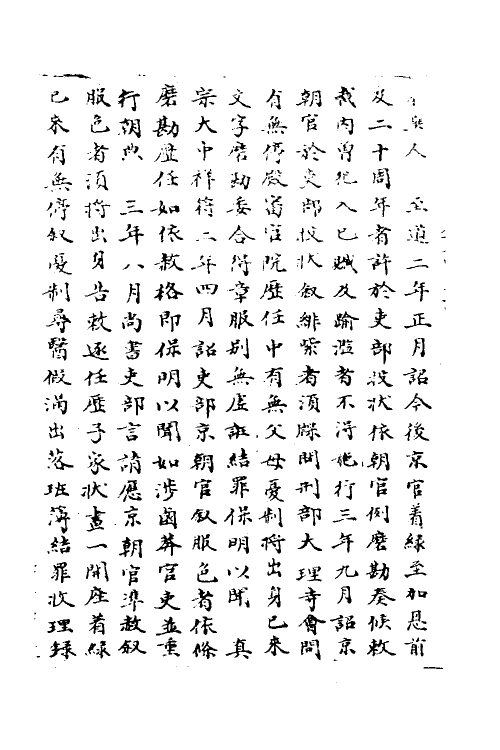 與人　至道二年正月詔今後京官着綠至加恩前
及二十周年者許於吏部投狀依朝官例磨勘奏候敕
裁內曾犯入已贓及踰濫者不得施行三年九月詔京
朝官於吏部投狀敘緋紫者須牒問刑部大理寺會問
有無停殿審官院歷任中有無父母憂制將出身已來
文字磨勘委合得章服別無虛誑結罪保明以聞　真
宗大中祥符二年四月詔吏部京朝官敘服色者依條
磨勘歷任如依赦格即保明以聞如涉鹵莽官吏並重
行朝典　三年八月尚書吏部言請應京朝官準赦敘
服色者須將出身告敕逐任歷子家狀畫一開座着綠
已來有無停敘憂制尋醫假滿出落班簿結罪收理録